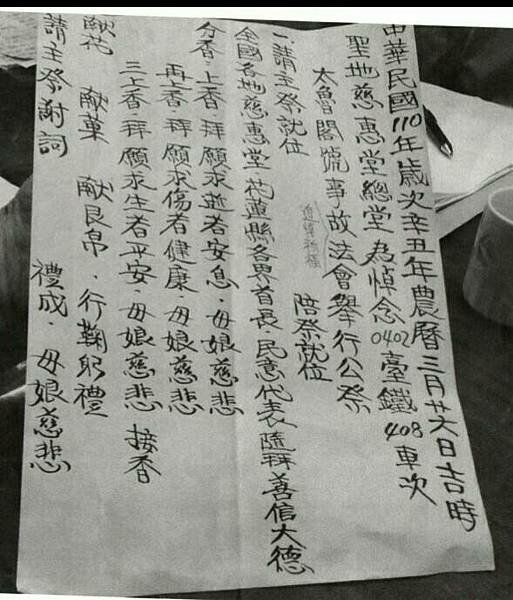 中華民國110年歲次辛丑年農曆三月廿六日吉時
聖地慈惠堂總堂為悼念0402臺鐵408車次
太魯閣號事故法會舉行公祭
追悼祈福
一.請主祭就位 陪祭就位
全國各地慈惠堂.花蓮縣各界首長.民意代表隨拜善信大德
分香.上香.拜願求逝者安息.母娘慈悲
再上香.拜願求傷者健康.母娘慈悲
三上香.拜願求生者平安.母娘慈悲 接香
獻花 献菓 献良帛.行鞠躬禮
請主祭謝詞 禮成.母娘慈悲